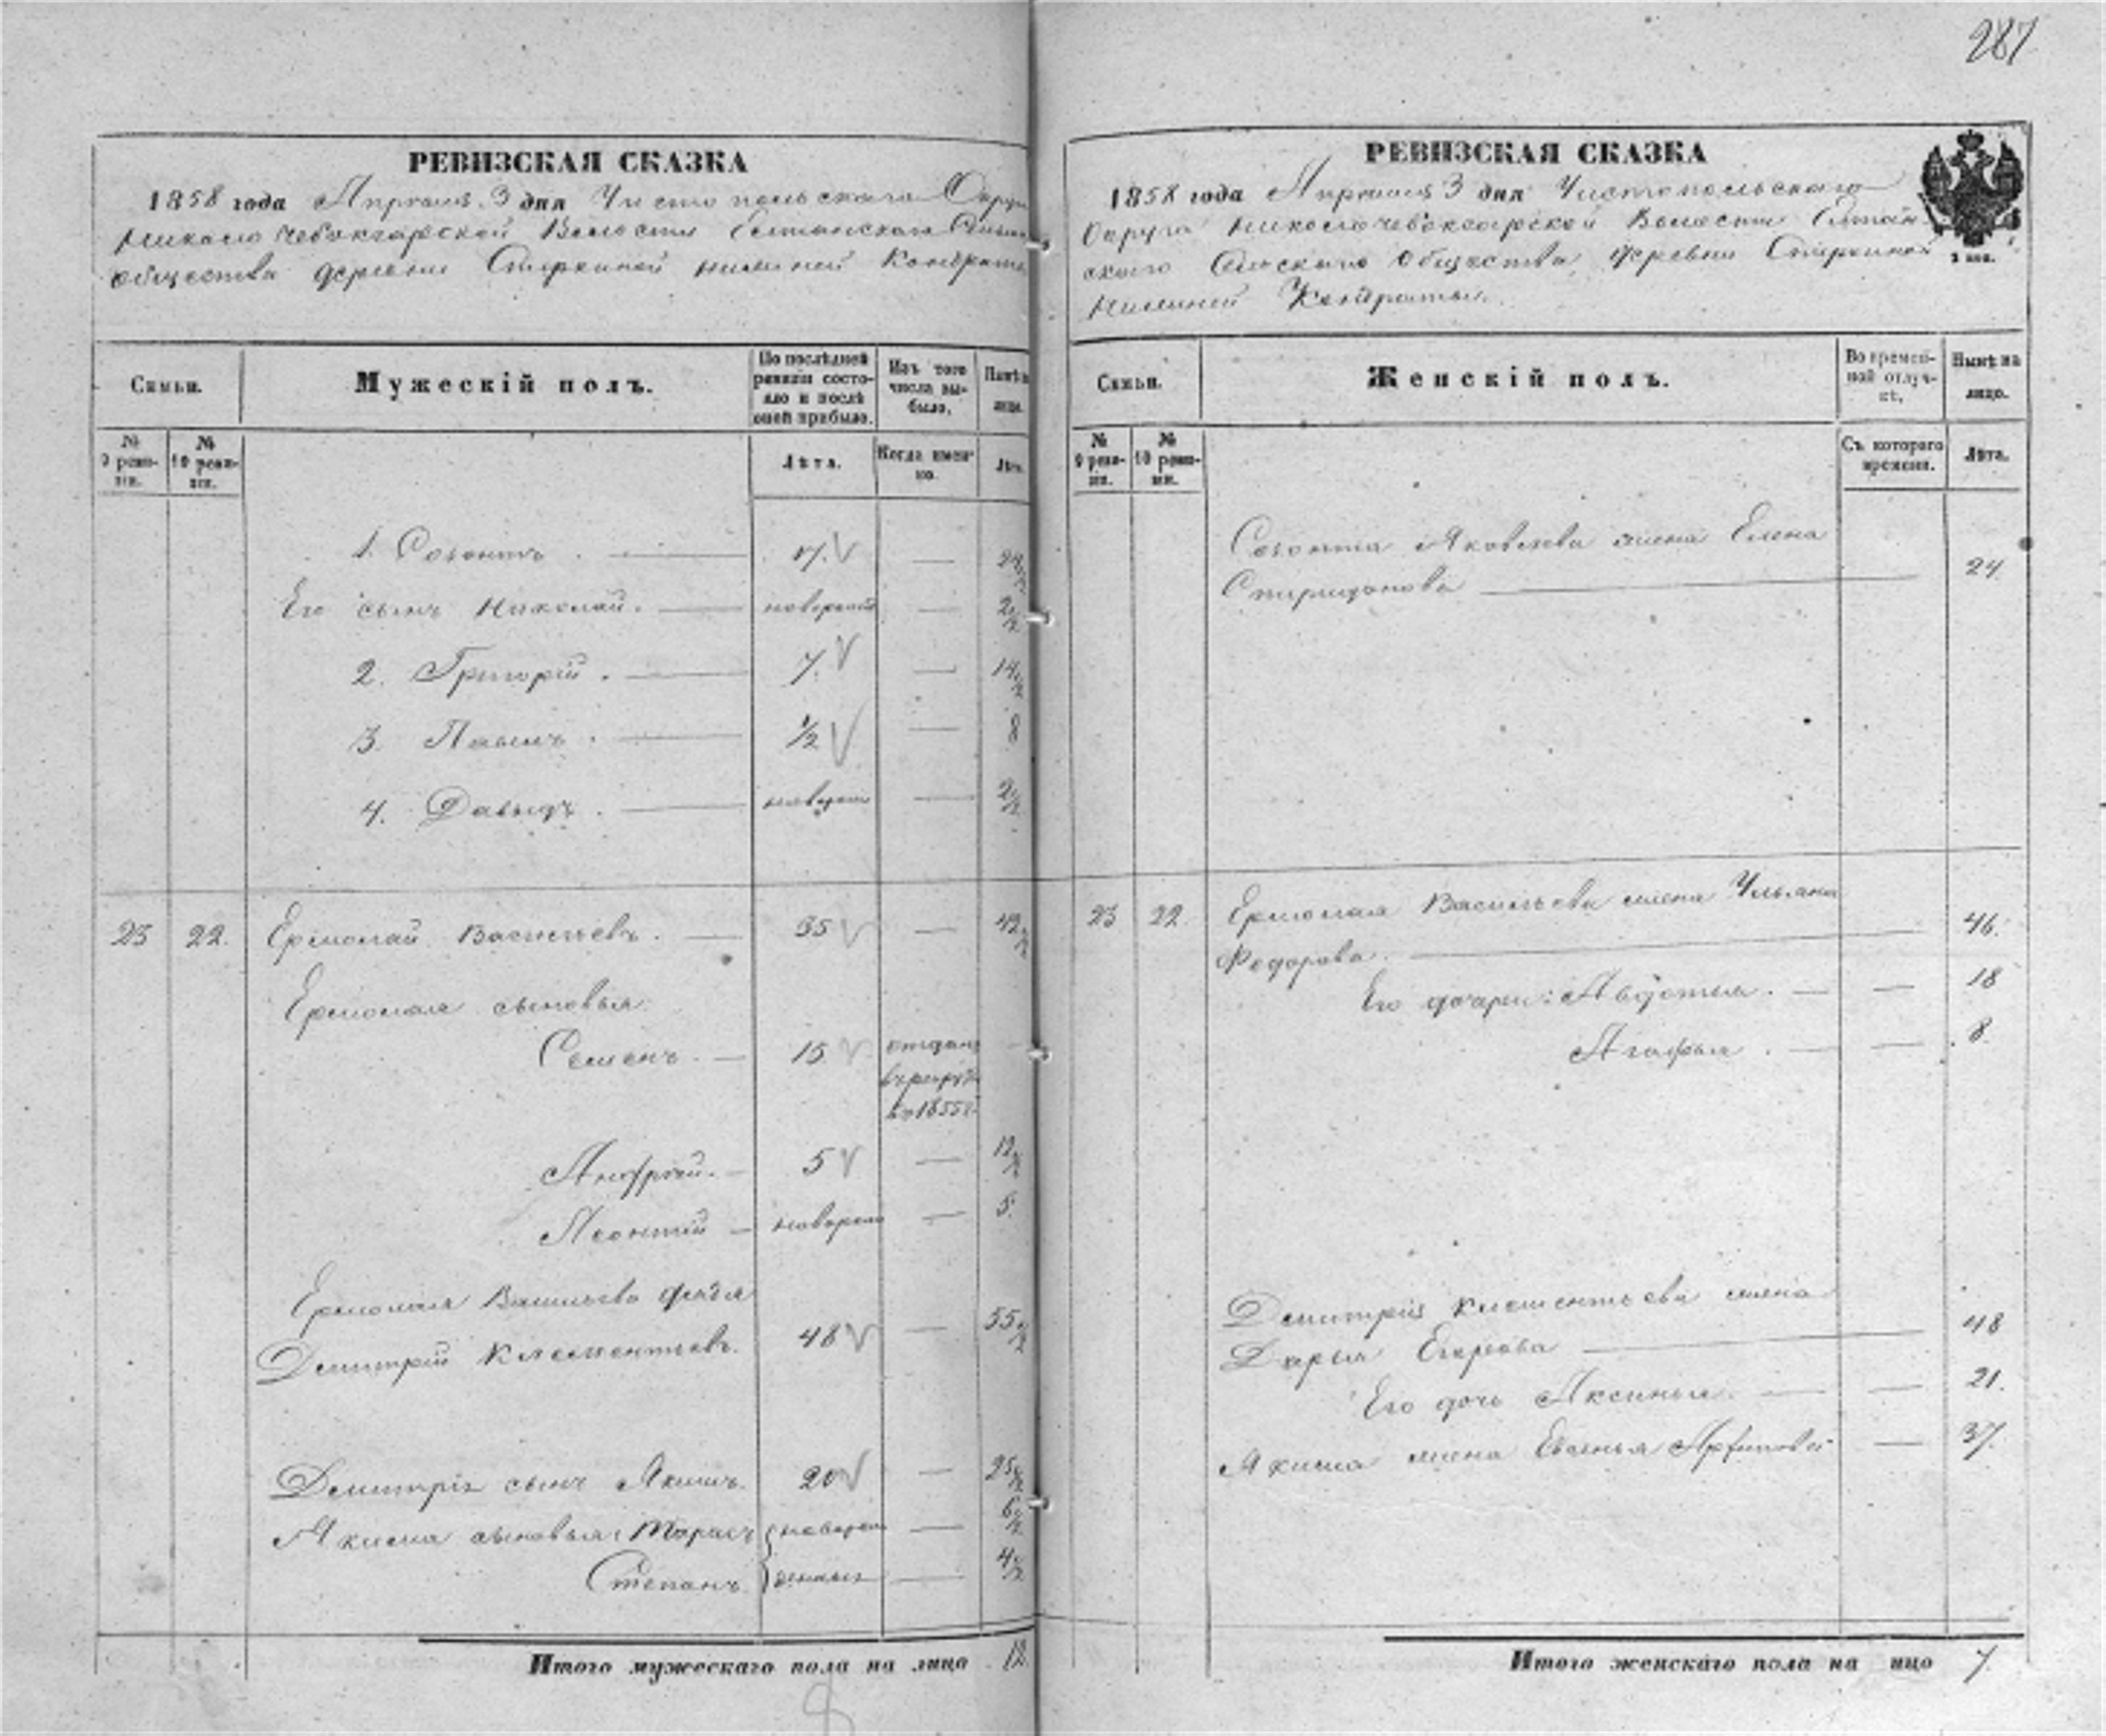 287
РЕВИЗСКАЯ СКАЗКА
1858 года Апреля 3 дня Чистопольскаго Округа
Николочебоксарской Волости Елтанскаго
общества деревни Старкиной нижней Кондраты
Семьи.
Мужескій полъ.
По послѣдней ревизіи состояло и послѣ оной прибыло.
Изъ того числа выбыло.
Нынѣ на лицо.
№ 9 ревизіи.
№ 10 ревизіи.
Лѣта.
Когда именно.
Лѣта.
1. Созонтъ . 17. 24 1/2
Его сынъ Николай. новорож 2 1/2
2. Григорій . 7. 14 1/2
3. Павелъ . 1/2 8
4. Давыдъ . новорож 2 1/2
23 22. Ермолай Васильевъ . 35 42 1/2
Ермолая сыновья:
Семенъ . 15 отданъ
въ рекрут
въ 1855 г.
Андрей. 5 12 1/2
Леонтий новорож 5.
Ермолая Васильева дядя
Дмитрій Клементьевъ. 48 55 1/2
Дмитрія сынъ Якимъ. 20 25 1/2
Якима сыновья: Тарасъ новорож 6 1/2
Степанъ денные 4 1/2
Итого мужескаго пола на лицо 12.
РЕВИЗСКАЯ СКАЗКА
1858 года Апреля 3 дня Чистопольскаго
Округа Николочебоксарской Волости Елтан
скаго Сельскаго Общества, деревни Старкиной
нижней Кондраты.
Семьи.
Женскій полъ.
Во временной отлучкѣ.
Нынѣ на лицо.
№ 9 ревизіи.
№ 10 ревизіи.
Съ котораго времени.
Лѣта.
Созонта Яковлева жена Елена
Спиридонова 24
23 22. Ермолая Васильева жена Ульяна
Федорова. 46.
Его дочери: Авдотья. 18
Агафья . 8.
Дмитрія Клементьева жена
Дарья Егорова 48
Его дочь Аксинья. 21.
Якима жена Евгенья 37.
Итого женскаго пола на лицо 7.